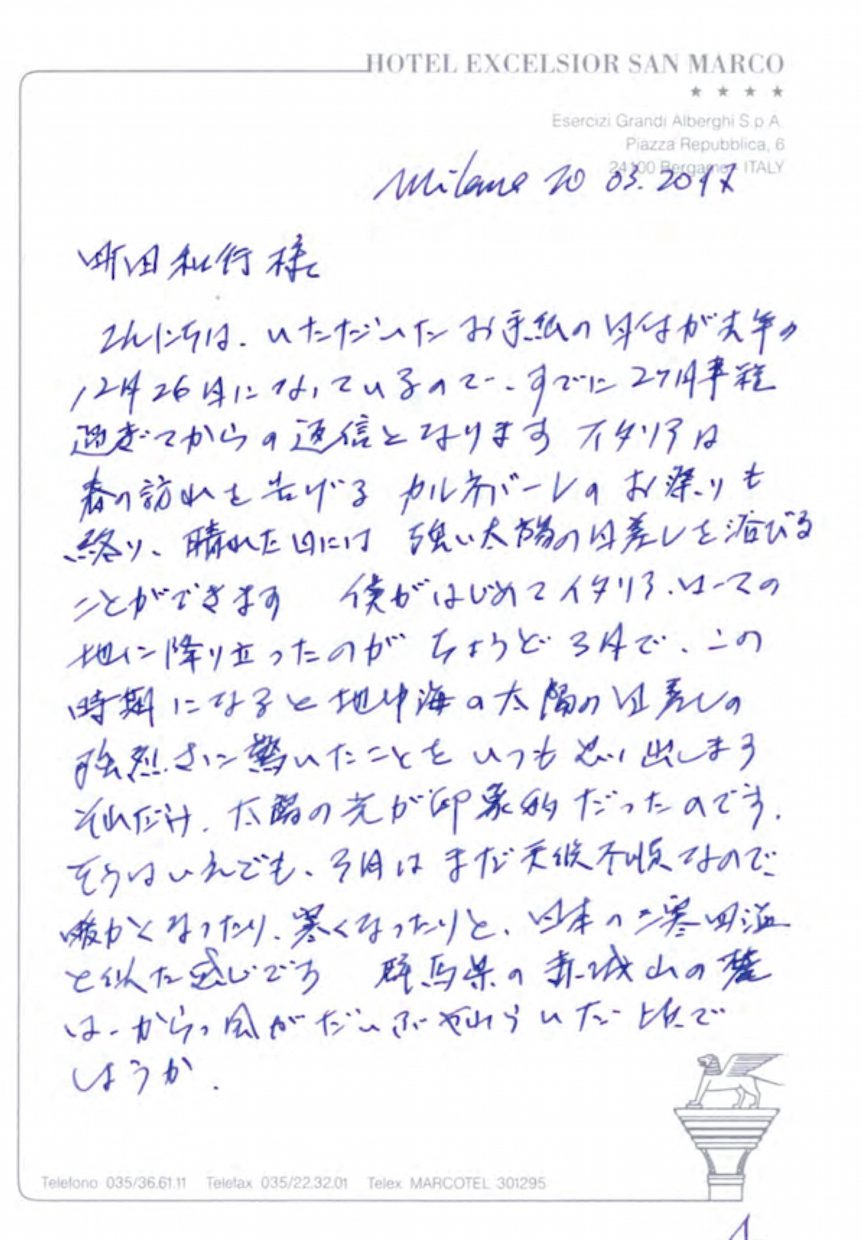 HOTEL EXCELSIOR SAN MARCO
★ ★ ★ ★
Esercizi Grandi Alberghi S.p.A.
Piazza Repubblica, 6
24100 Bergamo - ITALY
Milano 20 03. 2017
町田和行様
こんにちは、いただいたお手紙の日付が去年の
12月26日になっているので、すでに2ヶ月半程
過ぎてからの返信となります イタリアは
春の訪れを告げる カルネバーレのお祭りも
終り、晴れた日には 強い太陽の日差しを浴びる
ことができます 僕がはじめてイタリア、ローマの
地に降り立ったのが ちょうど3月で、この
時期になると地中海の太陽の日差しの
強烈さに驚いたことをいつも思い出します
それだけ、太陽の光が印象的だったのです.
そうはいえども、3月はまだ天候不順なので
暖かくなったり、寒くなったりと、日本の三寒四温
と似た感じです 群馬県の赤城山の麓
は、からっ風がだいぶ やわらいだ頃で
しょうか.
Telefono 035/36.61.11 Telefax 035/22.32.01 Telex MARCOTEL 301295
1